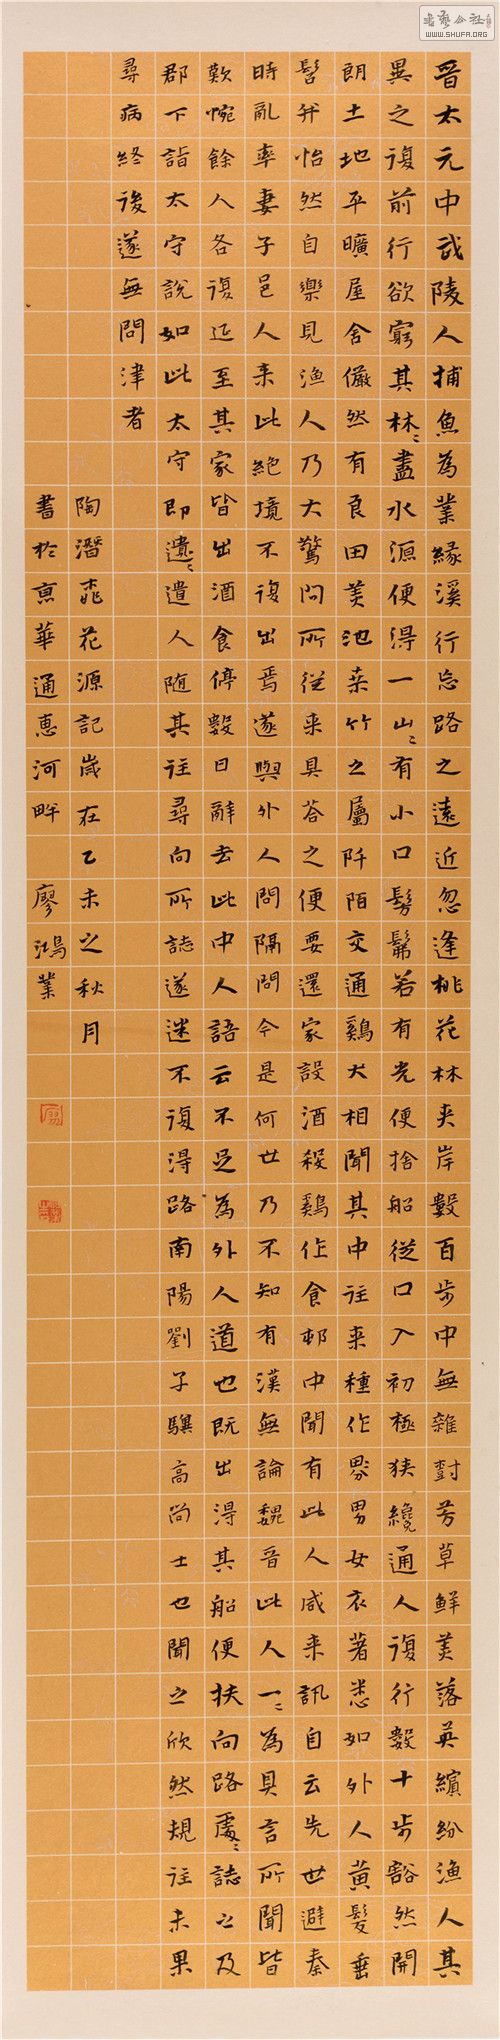 晉太元中武陵人捕魚為業緣溪行忘路之遠近忽逢桃花林夾岸數百步中無雜樹芳草鮮美落英繽紛漁人其
異之復前行欲窮其林〻盡水源便得一山〻有小口髣髴若有光便捨船從口入初極狹纔通人復行數十步豁然開
朗土地平曠屋舍儼然有良田美池桑竹之屬阡陌交通雞犬相聞其中往來種作男女衣著悉如外人黃髮垂
髫并怡然自樂見漁人乃大驚問所從來具答之便要還家設酒殺雞作食邨中聞有此人咸來訊自云先世避秦
時亂率妻子邑人來此絕境不復出焉遂與外人問隔問今是何世乃不知有漢無論魏晉此人一〻為具言所聞皆
歎惋餘人各復延至其家皆出酒食停數日辭去此中人語云不足為外人道也既出得其船便扶向路處〻誌之及
郡下詣太守說如此太守即遣〻遣人隨其往尋向所誌遂迷不復得路南陽劉子驥高尚士也聞之欣然規往未果
尋病終後遂無問津者
陶潛桃花源記歲在乙未之秋月
書於京華通惠河畔 廖鴻業
書藝公社
WWW.SHUFA.ORG